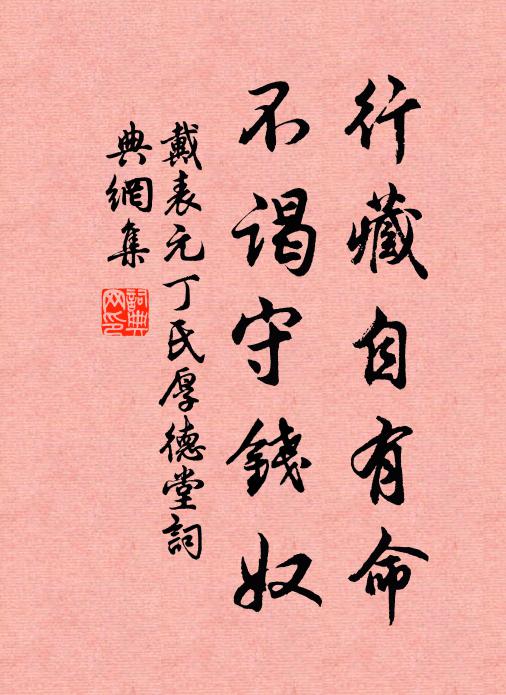 行藏自有命
不謁守錢奴
戴表元丁氏厚德堂詞
典網集
詞典网印